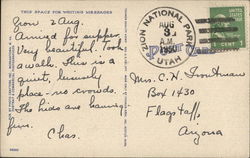 THIS SPACE FOR WRITING MESSAGES
Zion 2 Aug.
Arrived for supper.
Very beautiful. Took
a walk. This is a
quiet, leisurely
place - no crowds.
The kids are having
fun.
Chas.
ZION NATIONAL PARK
AUG
3
A.M.
1950
UTAH
Mrs. C. H. Troutman
Box 1430
Flagstaff,
Arizona